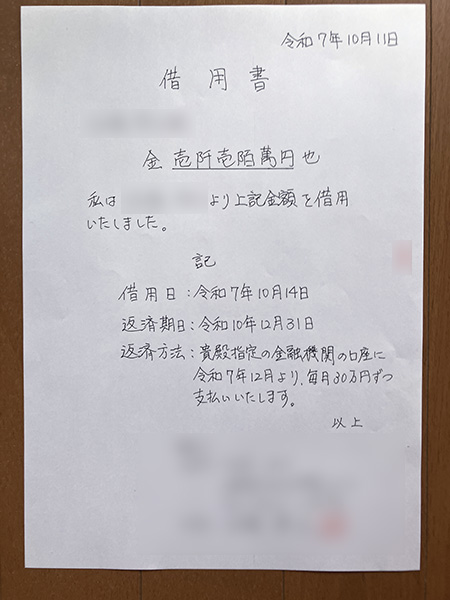 令和7年10月11日
借用書
金 壱阡壱陌萬円也
私は より上記金額を借用
いたしました。
記
借用日：令和7年10月14日
返済期日：令和10年12月31日
返済方法：貴殿指定の金融機関の口座に
令和7年12月より、毎月30万円ずつ
支払いいたします。
以上